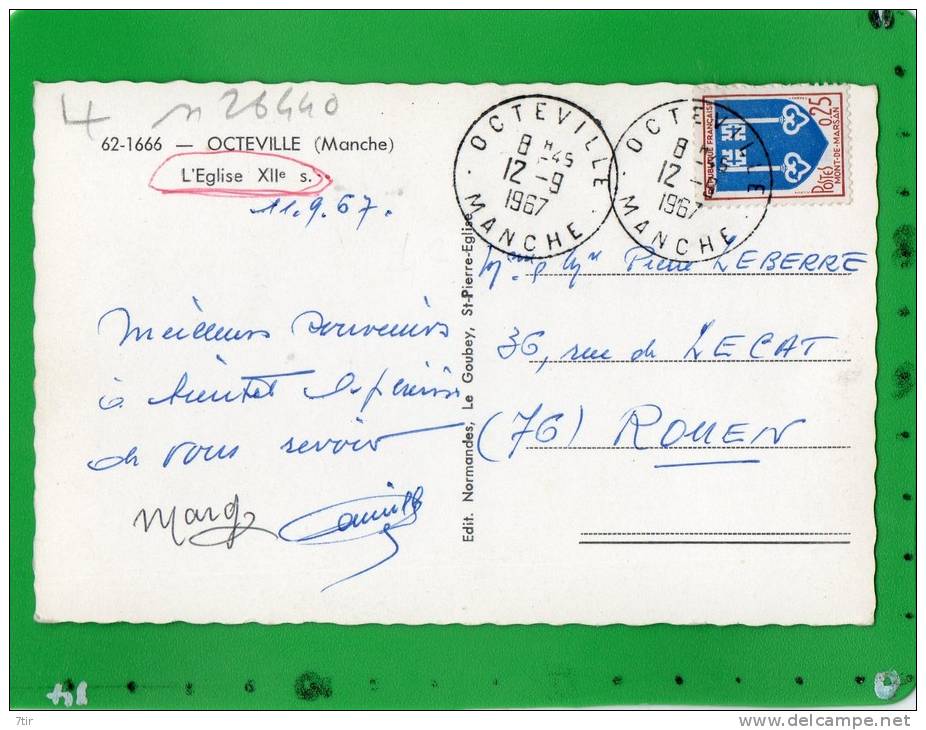 4 n 26440
62-1666 — OCTEVILLE (Manche)
L'Eglise XIIe s.
11.9.67.
Meilleurs souvenirs
à bientôt le plaisir
de vous revoir
Marg Camille
Edit. Normandes, Le Goubey, St-Pierre-Eglise
OCTEVILLE
8 H 45
12 - 9
1967
MANCHE
OCTEVILLE
8 H 45
12 - 9
1967
MANCHE
REPUBLIQUE FRANÇAISE
0,25
POSTES
MONT-DE-MARSAN
Pierre LEBERRE
36, rue de LECAT
(76) ROUEN
7tir
www.delcampe.net